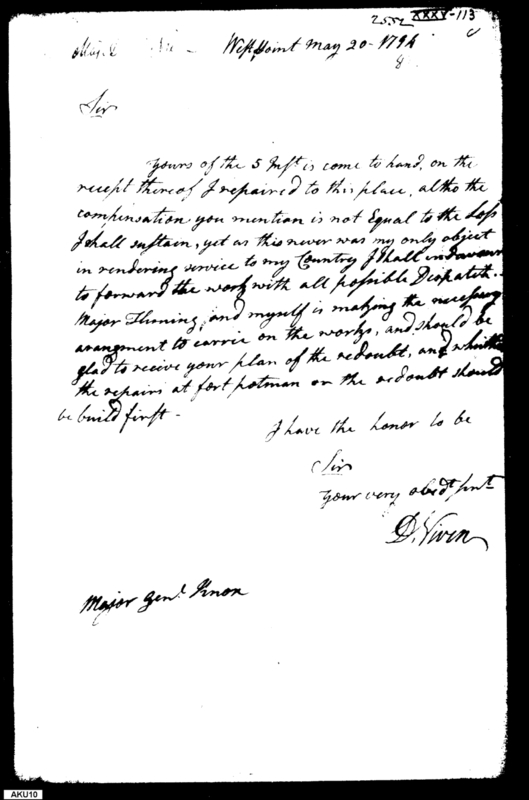 XXXV-113
West Point May 20-1794
Sir
yours of the 5 Inst is come to hand, on the
recept thereof I repaired to this place, altho the
compensation you mention is not Equal to the Loss
I shall sustain, yet as this never was my only object
in rendering service to my Country I shall indeavour
to forward the work with all possible Dispatch.
Major Fleming, and myself is making the necessary
arangment to carrie on the works, and should be
glad to receive your plan of the redoubt, and whither
the repairs at fort potman or the redoubt should
be build first -
I have the honor to be
Sir
your very obedt srnt
D. Niven
Major Genl Knox
AKU10